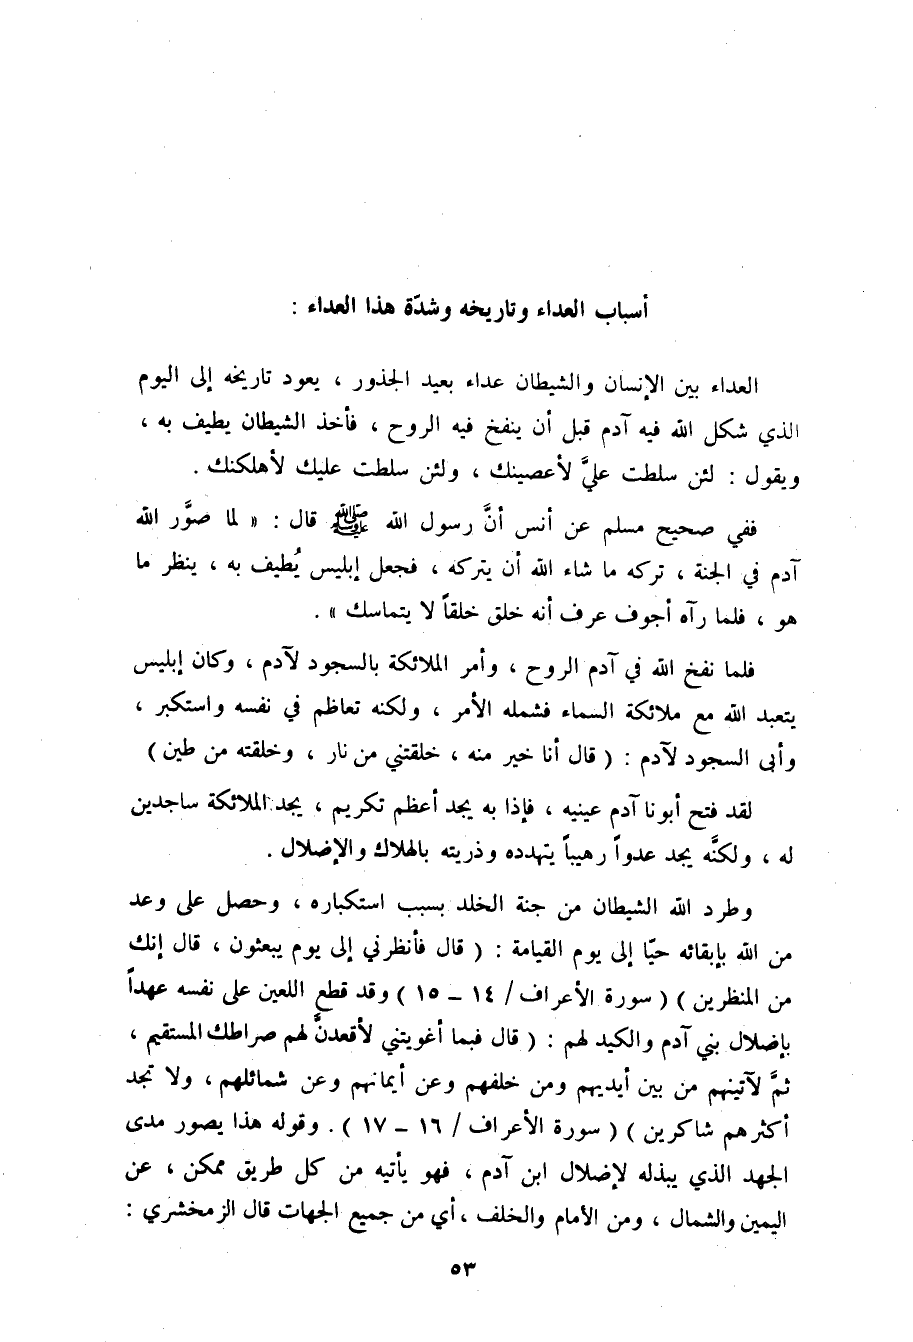 أسباب العداء وتاريخه وشدّة هذا العداء :
العداء بين الإنسان والشيطان عداء بعيد الجذور ، يعود تاريخه إلى اليوم
الذي شكل الله فيه آدم قبل أن ينفخ فيه الروح ، فأخذ الشيطان يطيف به ،
ويقول : لئن سلطت عليَّ لأعصينك ، ولئن سلطت عليك لأهلكنك .
ففي صحيح مسلم عن أنس أنَّ رسول الله ﷺ قال : « لما صوَّر الله
آدم في الجنة ، تركه ما شاء الله أن يتركه ، فجعل إبليس يُطيف به ، ينظر ما
هو ، فلما رآه أجوف عرف أنه خلق خلقاً لا يتماسك » .
فلما نفخ الله في آدم الروح ، وأمر الملائكة بالسجود لآدم ، وكان إبليس
يتعبد الله مع ملائكة السماء فشمله الأمر ، ولكنه تعاظم في نفسه واستكبر ،
وأبى السجود لآدم : ( قال أنا خير منه ، خلقتني من نار ، وخلقته من طين )
لقد فتح أبونا آدم عينيه ، فإذا به يجد أعظم تكريم ، يجد الملائكة ساجدين
له ، ولكنَّه يجد عدواً رهيباً يتهدده وذريته بالهلاك والإضلال .
وطرد الله الشيطان من جنة الخلد بسبب استكباره ، وحصل على وعد
من الله بإبقائه حيّا إلى يوم القيامة : ( قال فأنظرني إلى يوم يبعثون ، قال إنك
من المنظرين ) ( سورة الأعراف / ١٤ - ١٥ ) وقد قطع اللعين على نفسه عهداً
بإضلال بني آدم والكيد لهم : ( قال فبما أغويتني لأقعدنَّ لهم صراطك المستقيم ،
ثمَّ لآتينهم من بين أيديهم ومن خلفهم وعن أيمانهم وعن شمائلهم ، ولا تجد
أكثرهم شاكرين ) ( سورة الأعراف / ١٦ - ١٧ ) . وقوله هذا يصور مدى
الجهد الذي يبذله لإضلال ابن آدم ، فهو يأتيه من كل طريق ممكن ، عن
اليمين والشمال ، ومن الأمام والخلف ، أي من جميع الجهات قال الزمخشري :
٥٣